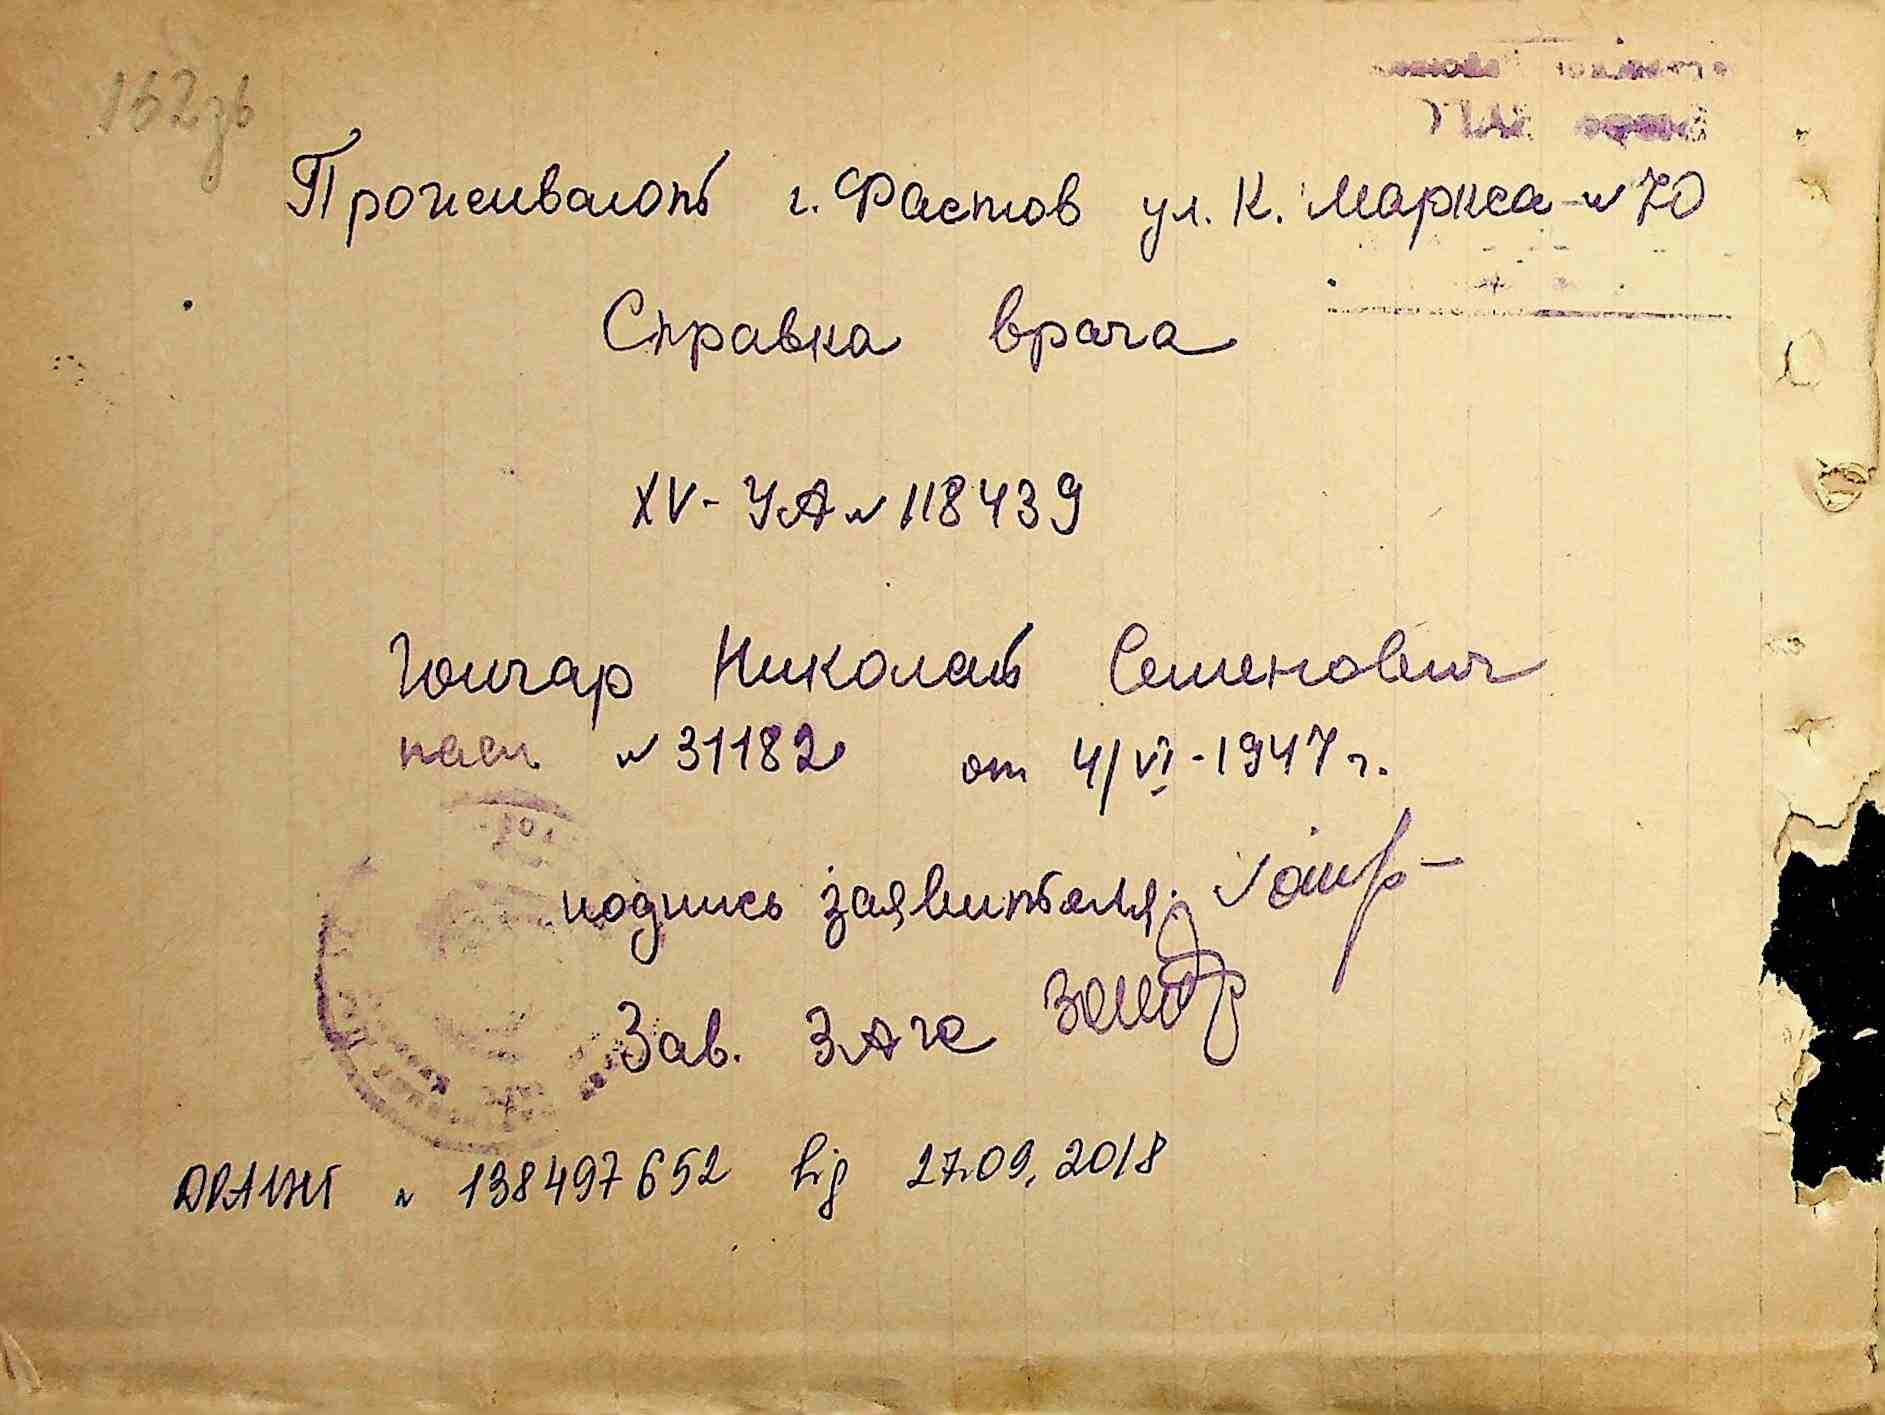 162зв
Проживают г. Фастов ул. К. Маркса №70
Справка врача
XV-УА № 118439
Гончар Николай Семенович
пасп. № 31182 от 4/VI-1947 г.
подпись заявителя:
Зав. ЗАГС
ДРАЦСГ № 138497652 від 27.09.2018